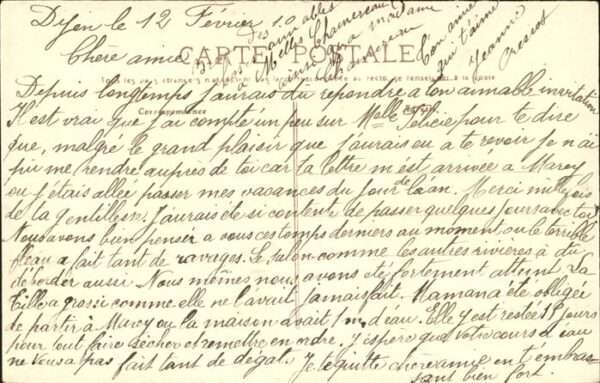 Dijon le 12 Février 10
Chère amie
CARTE POSTALE
bien aimables
à Melles Chamereau
ainsi qu'a madame
Chamereau
Ton amie
qui t'aime
Jeanne
Correspondance
Depuis longtemps j'aurais du repondre a ton aimable invitation
Il est vrai que j'ai compté un peu sur Melle Félicie pour te dire
que, malgre le grand plaisir que j'aurais eu a te revoir je n'ai
pu me rendre auprès de toi car ta lettre m'est arrivée a Marcy
ou j'étais allée passer mes vacances du jour de l'an. Merci mille fois
de ta gentillesse j'aurais été si contente de passer quelques jours avec toi
Nous avons bien penser a vous ces temps derniers au moment ou le terrible
fleau a fait tant de ravages. Le Salon comme les autres rivières a du
déborder aussi. Nous mêmes nous avons été fortement atteint La
Tille a grossi comme elle ne l'avait jamais fait. Maman a été obligée
de partir à Marcy ou la maison avait 1m, d'eau. Elle y est restée 15 jours
pour tout faire secher et remettre en ordre. J'espère que votre cours d'eau
ne vous a pas fait tant de dégats. Je te quitte chère amie en t'embras-
sant bien fort.